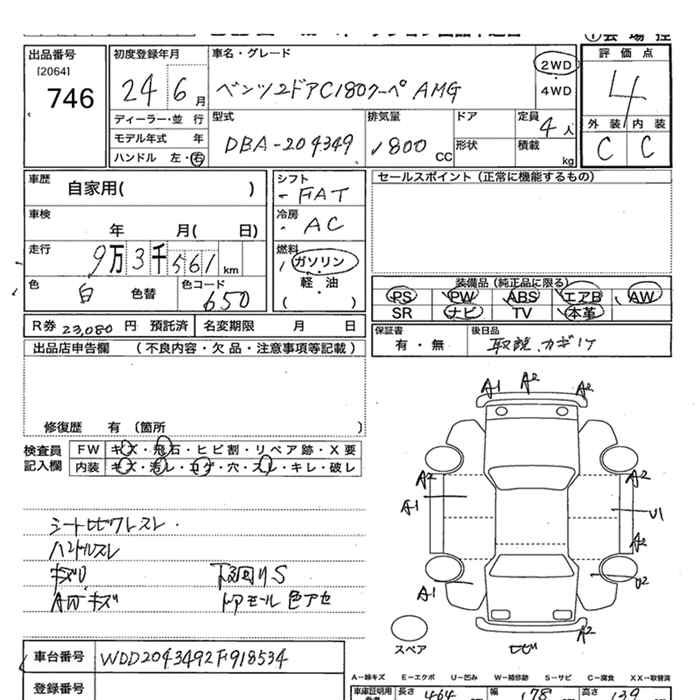 出品番号
[2064]
746
初度登録年月
24 6月
ディーラー・並 行
モデル年式 年
ハンドル 左・右
車名・グレード
ベンツ 2ドアC180クーペ AMG
2WD
4WD
型式
DBA-204349
排気量
1800 CC
ドア
形状
定員
4人
積載
kg
評 価 点
4
外 装 内 装
C C
車歴
自家用( )
車検
年 月( 日)
走行
9万3千561km
色
白 色替
色コード
650
シフト
FAT
冷房
AC
燃料
ガソリン
軽・油
( )
セールスポイント(正常に機能するもの)
装備品(純正品に限る)
PS PW ABS エアB AW
SR ナビ TV 本革
R券 23,080 円 預託済 名変期限 月 日
保証書
有・無
後日品
取説、カギ1ケ
出品店申告欄 (不良内容・欠品・注意事項等記載)
修復歴 有 (箇所 )
検査員
記入欄
FW キズ・飛石・ヒビ割・リペア跡・X要
内装 キズ・汚レ・コゲ・穴・スレ・キレ・破レ
シートヒビワレスレ
ハンドルスレ
キズU
AWキズ
下回りS
ドアモール色アセ
A1 A2 A2
A2 A2
A1 U1
A2
A1 U2
A2
スペア
ヒビ
車台番号 WDD2043492F918534
登録番号
A−線キズ E−エクボ U−凹み W−補修跡 S−サビ C−腐食 XX−取替済
車庫証明用 長さ 464 幅 178 高さ 139